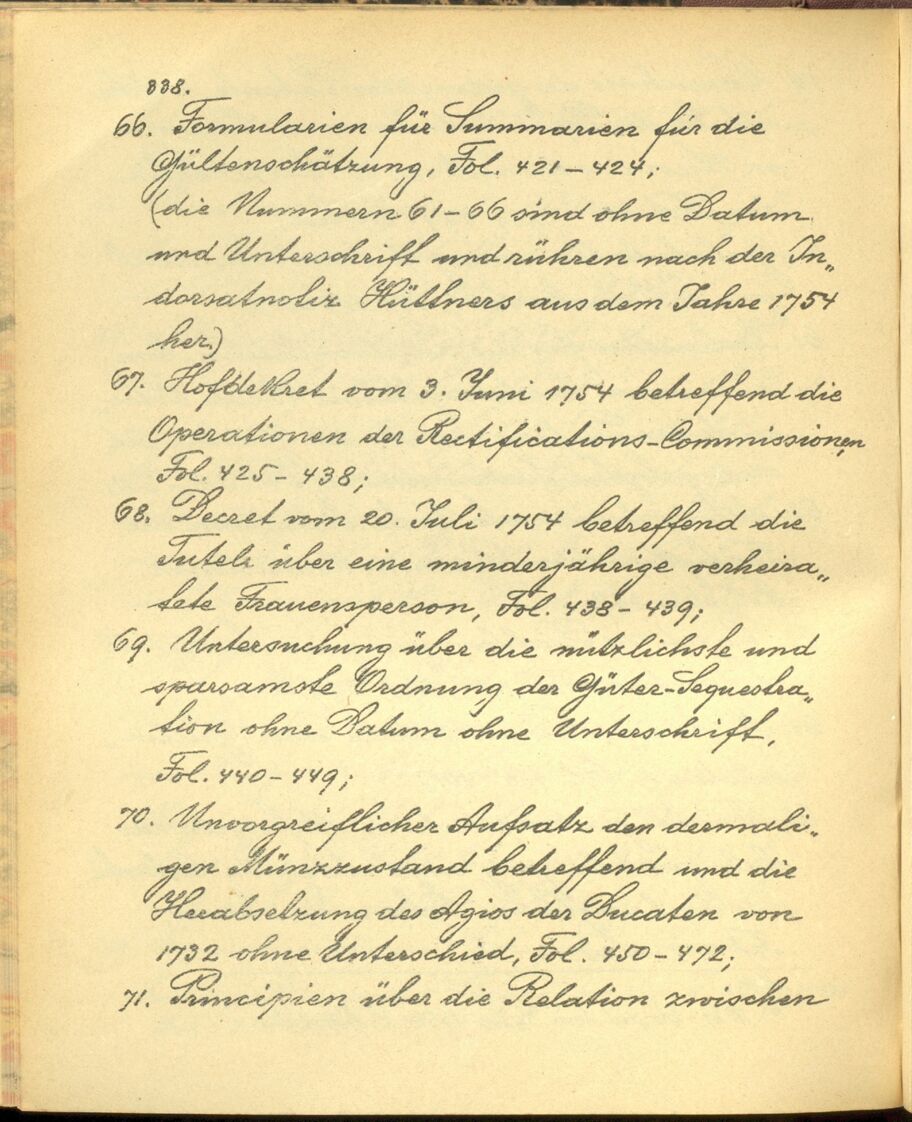 338.
66. Formularien für Summarien für die
Gültenschätzung, Fol. 421–424;
(die Nummern 61–66 sind ohne Datum
und Unterschrift und rühren nach der In„
dorsatnotiz Hüttners aus dem Jahre 1754
her.)
67. Hofdekret vom 3. Juni 1754 betreffend die
Operationen der Rectifications-Commissionen,
Fol. 425–438;
68. Decret vom 20. Juli 1754 betreffend die
Tutel über eine minderjährige verheira„
tete Frauensperson, Fol. 438–439;
69. Untersuchung über die nützlichste und
sparsamste Ordnung der Güter-Sequestra„
tion ohne Datum ohne Unterschrift,
Fol. 440–449;
70. Unvorgreiflicher Aufsatz den dermali„
gen Münzzustand betreffend und die
Herabsetzung des Agios der Ducaten von
1732 ohne Unterschied, Fol. 450–472;
71. Principien über die Relation zwischen